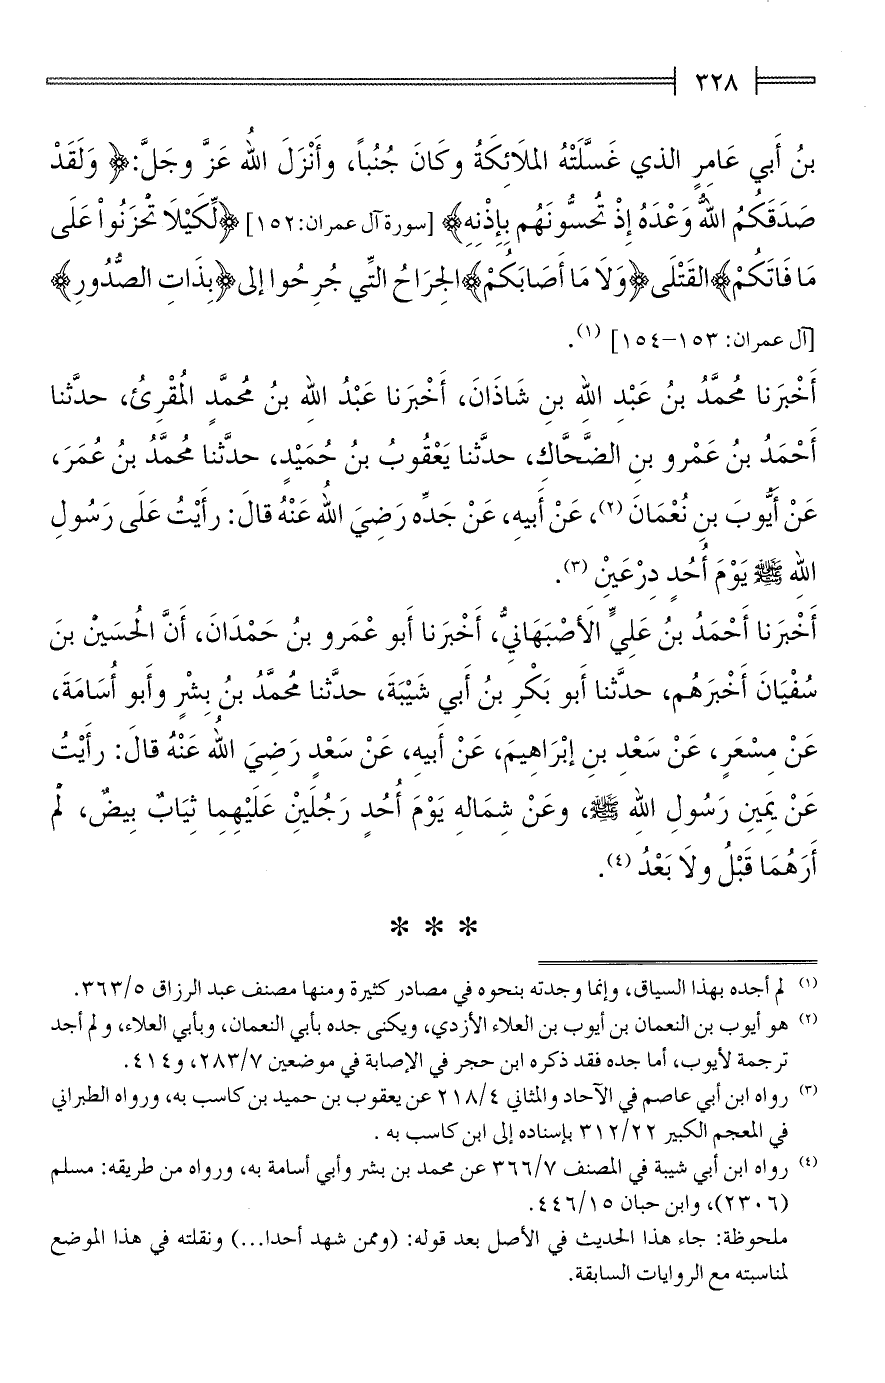 ٣٢٨
بنُ أَبي عَامِرٍ الذي غَسَّلَتْهُ الملَائِكَةُ وكَانَ جُنُباً، وأَنْزَلَ اللهُ عَزَّ وجَلَّ: ﴿ وَلَقَدْ
صَدَقَكُمُ اللهُ وَعْدَهُ إِذْ تُحسُّونَهُم بِإِذْنِهِ﴾ [سورة آل عمران:١٥٢] ﴿لِّكَيْلَا تْحْزَنُواْ عَلَى
مَا فَاتَكُمْ﴾القَتْلَى﴿وَلَا مَا أَصَابَكُمْ﴾الجِرَاحُ التِّي جُرِحُوا إلى﴿بِذَاتِ الصُّدُورِ﴾
[آل عمران: ١٥٣-١٥٤] (١).
أَخْبَرَنا مُحمَّدُ بنُ عَبْدِ اللهِ بنِ شَاذَانَ، أَخْبَرَنا عَبْدُ اللهِ بنُ مُحمَّدٍ المُقْرِئُ، حدثَّنا
أَحْمَدُ بنُ عَمْرو بنِ الضَّحَّاكِ، حدثَّنا يَعْقُوبُ بنُ حُمَيْدٍ، حدثَّنا مُحمَّدُ بنُ عُمَرَ،
عَنْ أَيُّوبَ بنِ نُعْمَانَ (٢)، عَنْ أَبيهِ، عَنْ جَدِّه رَضِيَ اللهُ عَنْهُ قالَ: رأَيْتُ عَلَى رَسُولِ
اللهِ ﷺ يَوْمَ أُحُدٍ دِرْعَيْنِ (٣).
أَخْبَرَنا أَحْمَدُ بنُ عَلِيٍّ الأَصْبَهَانيُّ، أَخْبَرَنا أبو عْمَرو بنُ حَمْدَانَ، أَنَّ الحُسَيْنَ بنَ
سُفْيَانَ أَخْبَرَهُم، حدثَّنا أبو بَكْرِ بنُ أَبي شَيْبَةَ، حدثَّنا مُحمَّدُ بنُ بِشْرٍ وأبو أُسَامَةَ،
عَنْ مِسْعَرٍ، عَنْ سَعْدِ بنِ إبْرَاهِيمَ، عَنْ أَبيهِ، عَنْ سَعْدٍ رَضِيَ اللهُ عَنْهُ قالَ: رأَيْتُ
عَنْ يَمِينِ رَسُولِ اللهِ ﷺ، وعَنْ شِمَالهِ يَوْمَ أُحُدٍ رَجُلَيْنِ عَلَيْهِما ثِيَابٌ بِيضٌ، لَمْ
أَرَهُمَا قَبْلُ ولَا بَعْدُ (٤).
* * *
(١) لم أجده بهذا السياق، وإنما وجدته بنحوه في مصادر كثيرة ومنها مصنف عبد الرزاق ٣٦٣/٥.
(٢) هو أيوب بن النعمان بن أيوب بن العلاء الأزدي، ويكنى جده بأبي النعمان، وبأبي العلاء، ولم أجد
ترجمة لأيوب، أما جده فقد ذكره ابن حجر في الإصابة في موضعين ٢٨٣/٧، و٤١٤.
(٣) رواه ابن أبي عاصم في الآحاد والمثاني ٢١٨/٤ عن يعقوب بن حميد بن كاسب به، ورواه الطبراني
في المعجم الكبير ٣١٢/٢٢ بإسناده إلى ابن كاسب به .
(٤) رواه ابن أبي شيبة في المصنف ٣٦٦/٧ عن محمد بن بشر وأبي أسامة به، ورواه من طريقه: مسلم
(٢٣٠٦)، وابن حبان ٤٤٦/١٥.
ملحوظة: جاء هذا الحديث في الأصل بعد قوله: (وممن شهد أحدا...) ونقلته في هذا الموضع
لمناسبته مع الروايات السابقة.